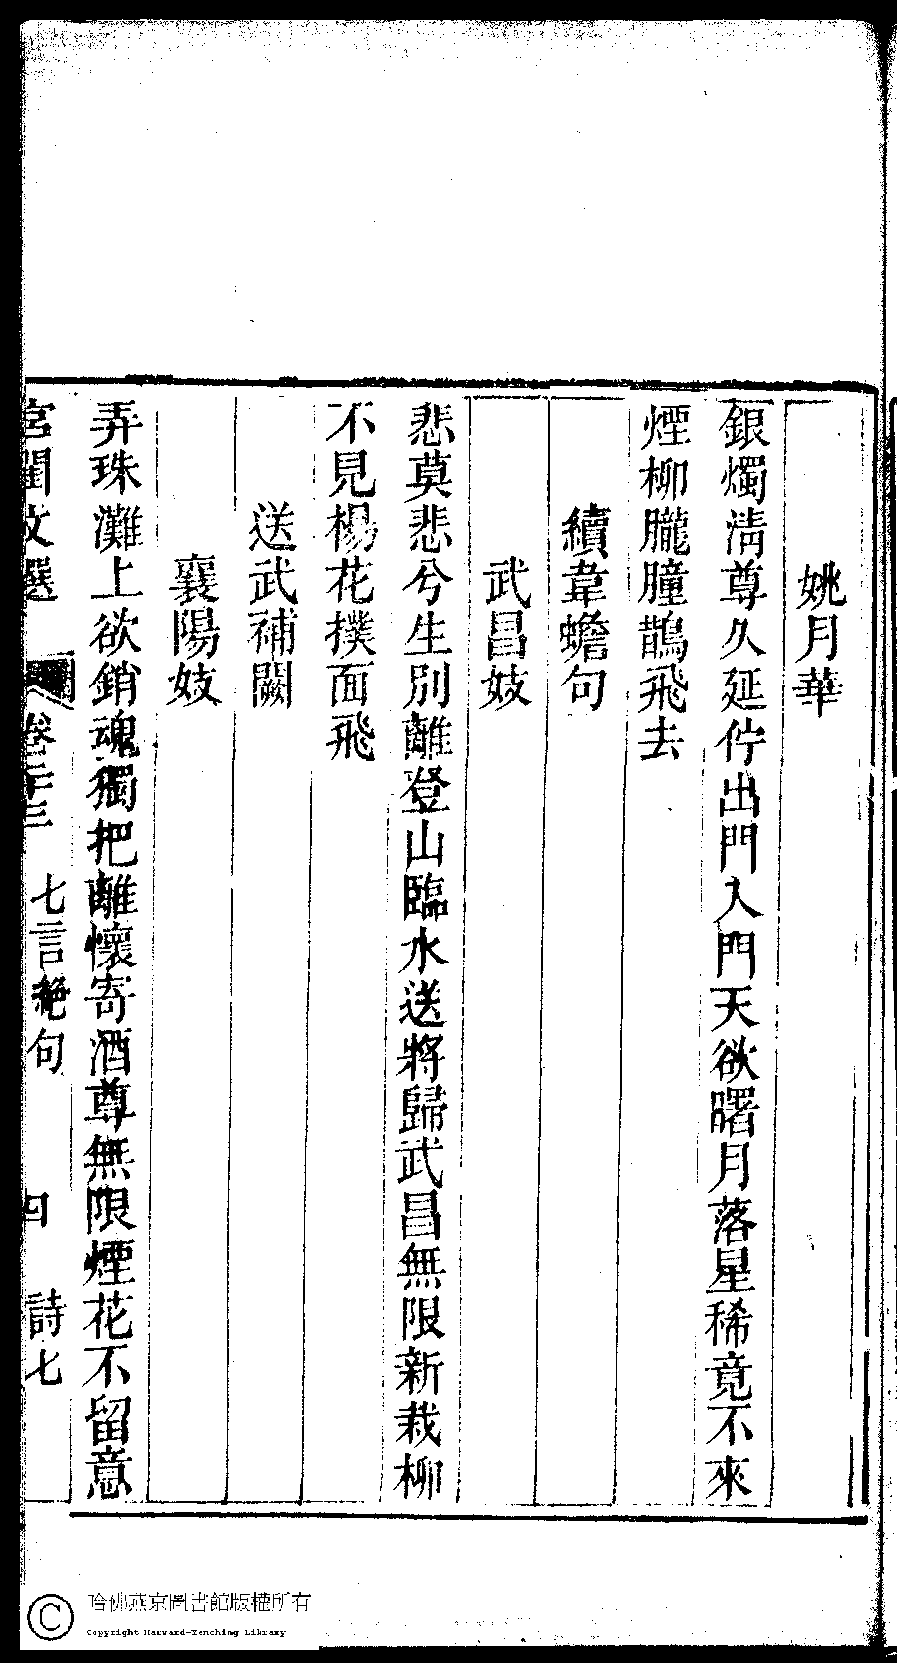 姚月華
銀燭淸尊久延佇出門入門天欲曙月落星稀竟不來
煙柳朧膧鵲飛去
續韋蟾句
武昌妓
悲莫悲兮生別離登山臨水送將歸武昌無限新栽柳
不見楊花撲面飛
送武補闕
襄陽妓
弄珠灘上欲銷魂獨把離懷寄酒尊無限煙花不留意
宮閨文選 卷二十三 七言絶句 四 詩七
哈佛燕京圖書館版權所有
Copyright Harvard-Yenching Library